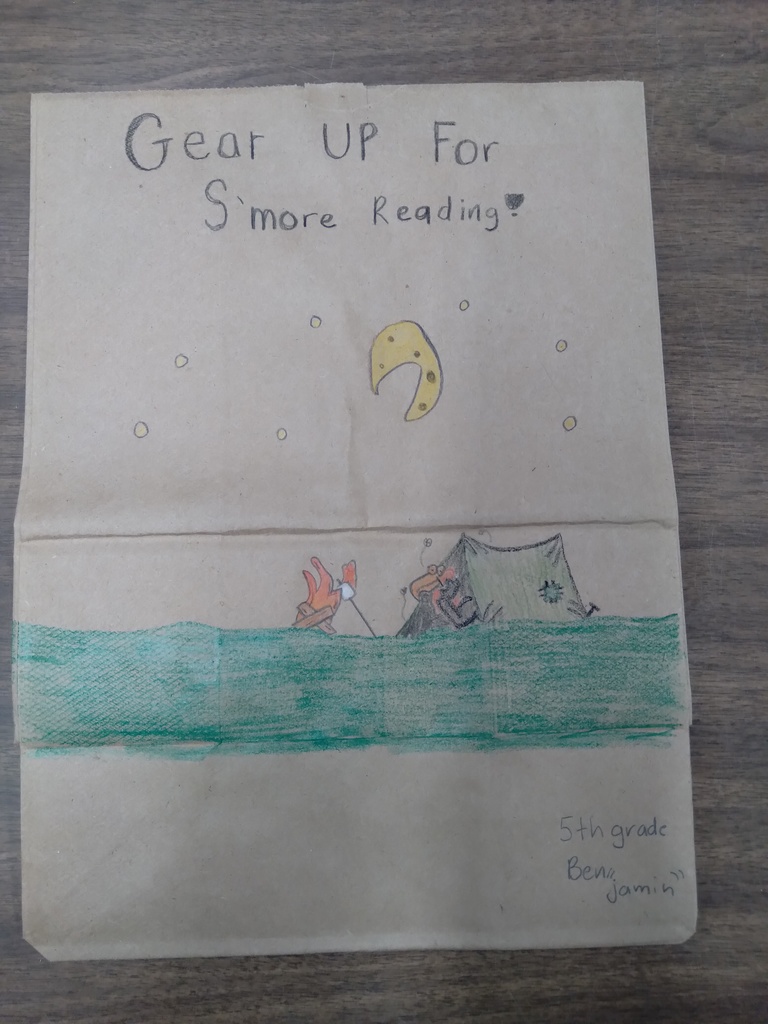 Gear UP For
S'more Reading!
5th grade
Ben"
jamin"